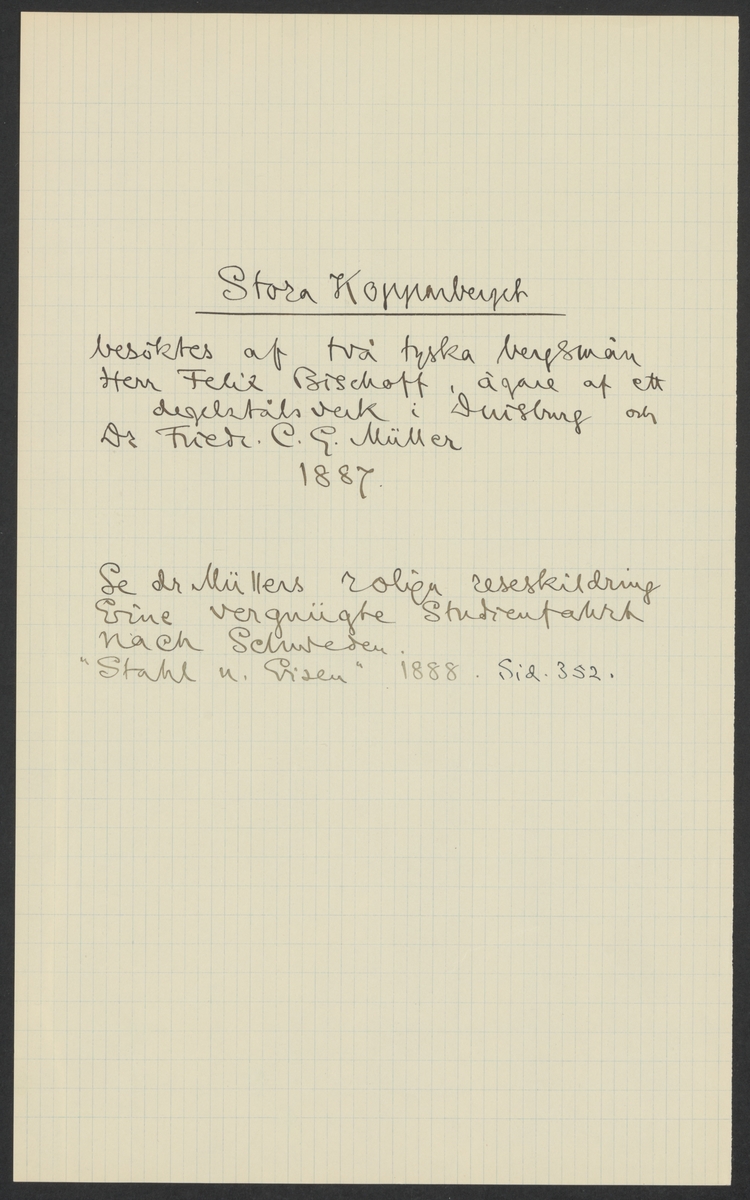 Stora Kopparberget
besöktes af två tyska bergsmän
Herr Felix Bischoff, ägare af ett
degelstålsverk i Duisburg och
Dr Friedr. C. G. Müller
1887.
Se dr Müllers roliga reseskildring
Eine vergnügte Studienfahrt
nach Schweden.
"Stahl u. Eisen" 1888. Sid. 352.